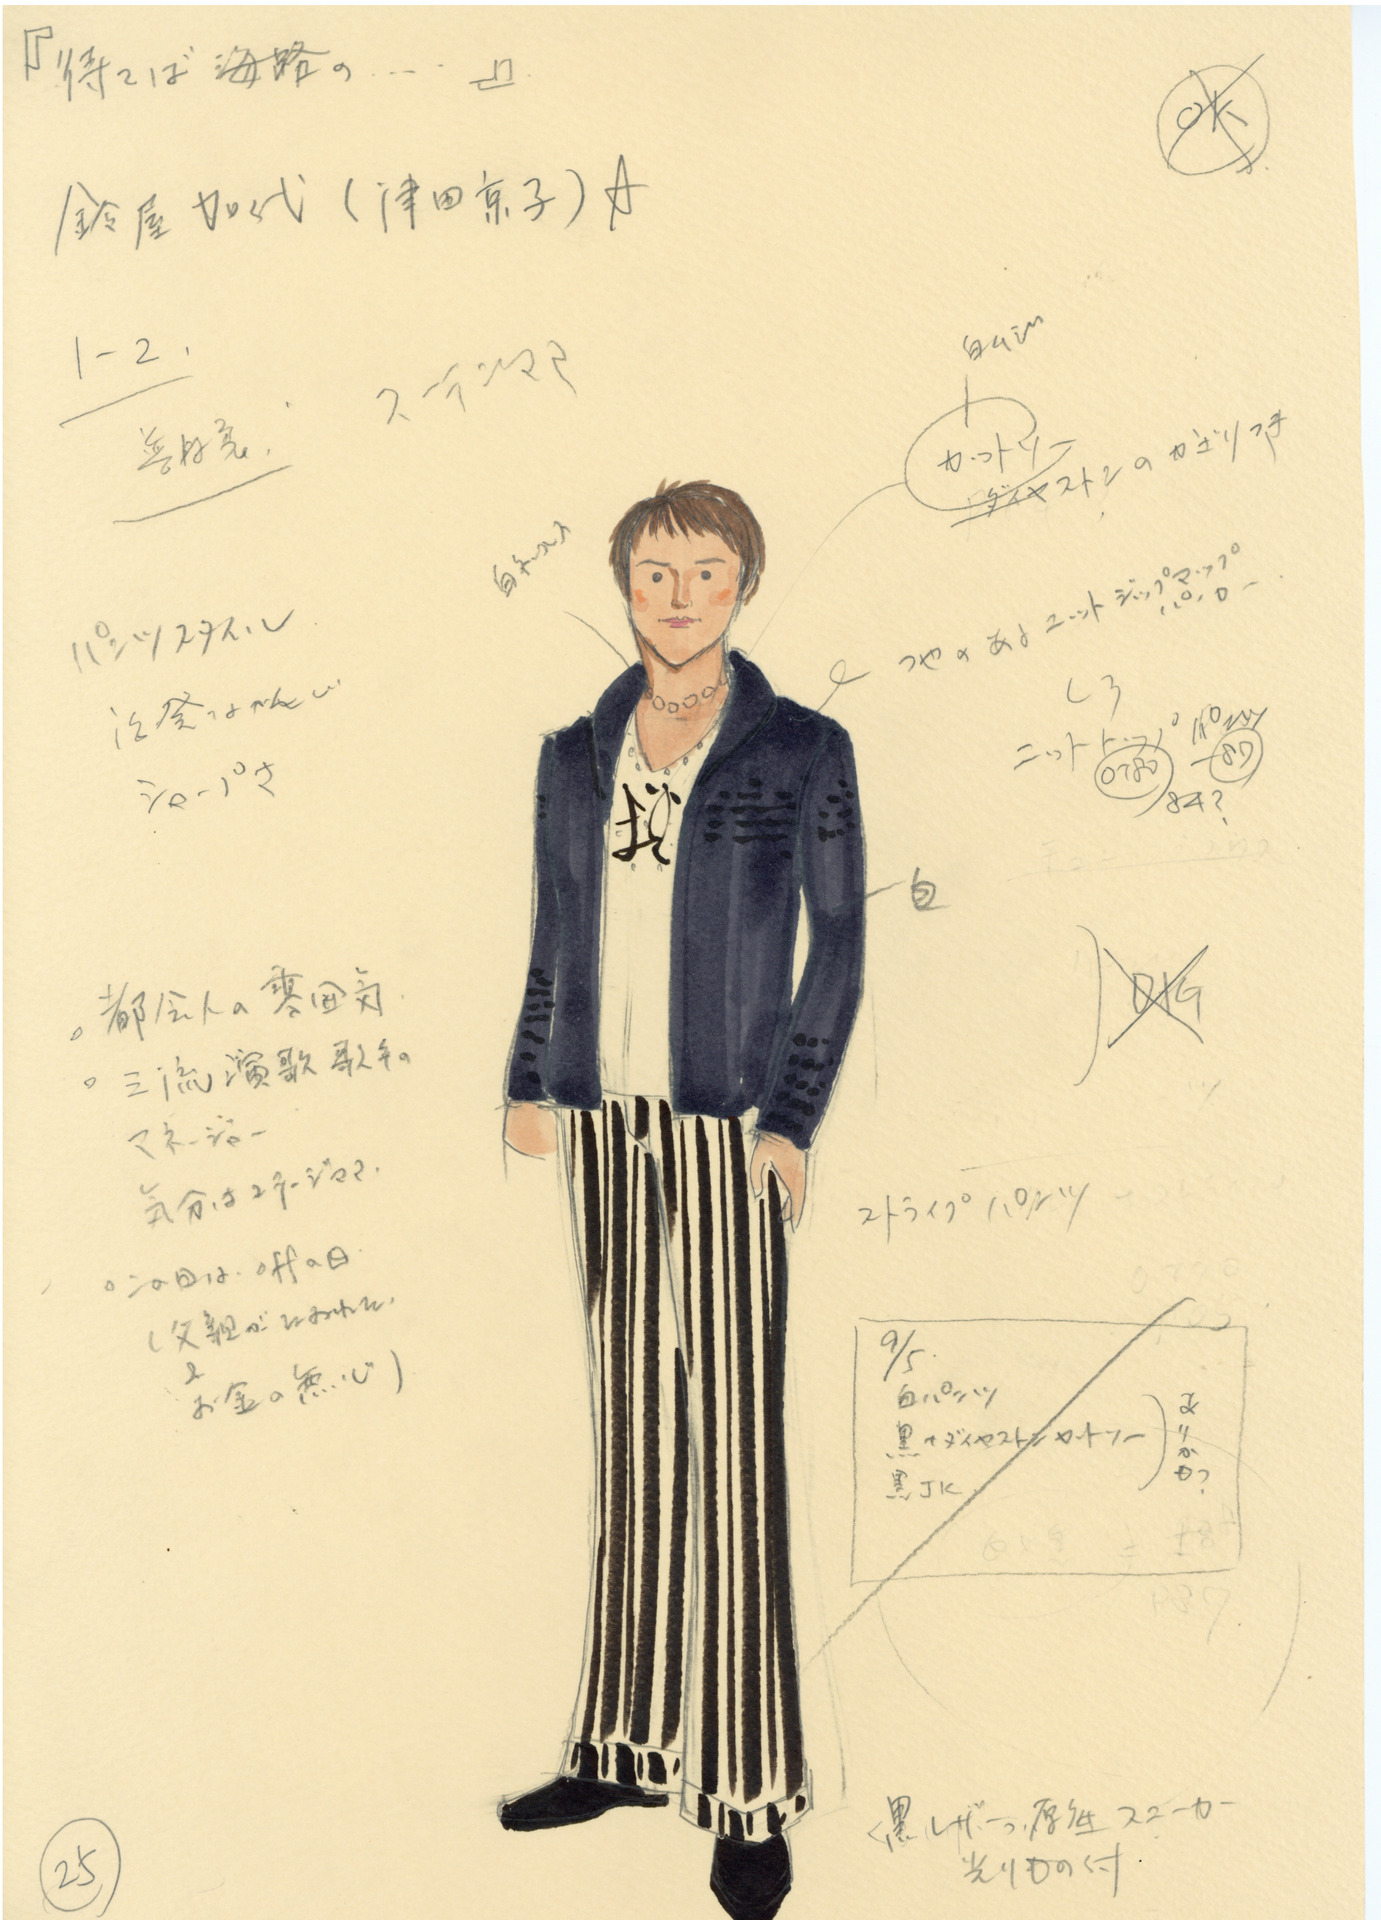 『待てば海路の……』
OK
鈴屋 加代（津田京子）
1-2.
ステンママ
白ムジ
カットソー
ダイヤストンのかざりつき
白ネックレス
パンツスタイル
活発はかんじ
シャープさ
つやのある ニット ジップアップ
しろ
ニットトップ パンツ
0780
87
84?
白
。都会人の雰囲気
。三流演歌歌手の
マネージャー
気分はステージママ.
。この日は. offの日
（父親がたおれた.
お金の無心）
ストライプ パンツ
9/5.
白パンツ
黒+ダイヤストンカットソー
黒JK
ありかも?
黒レザーの厚底スニーカー
光りもの付
25